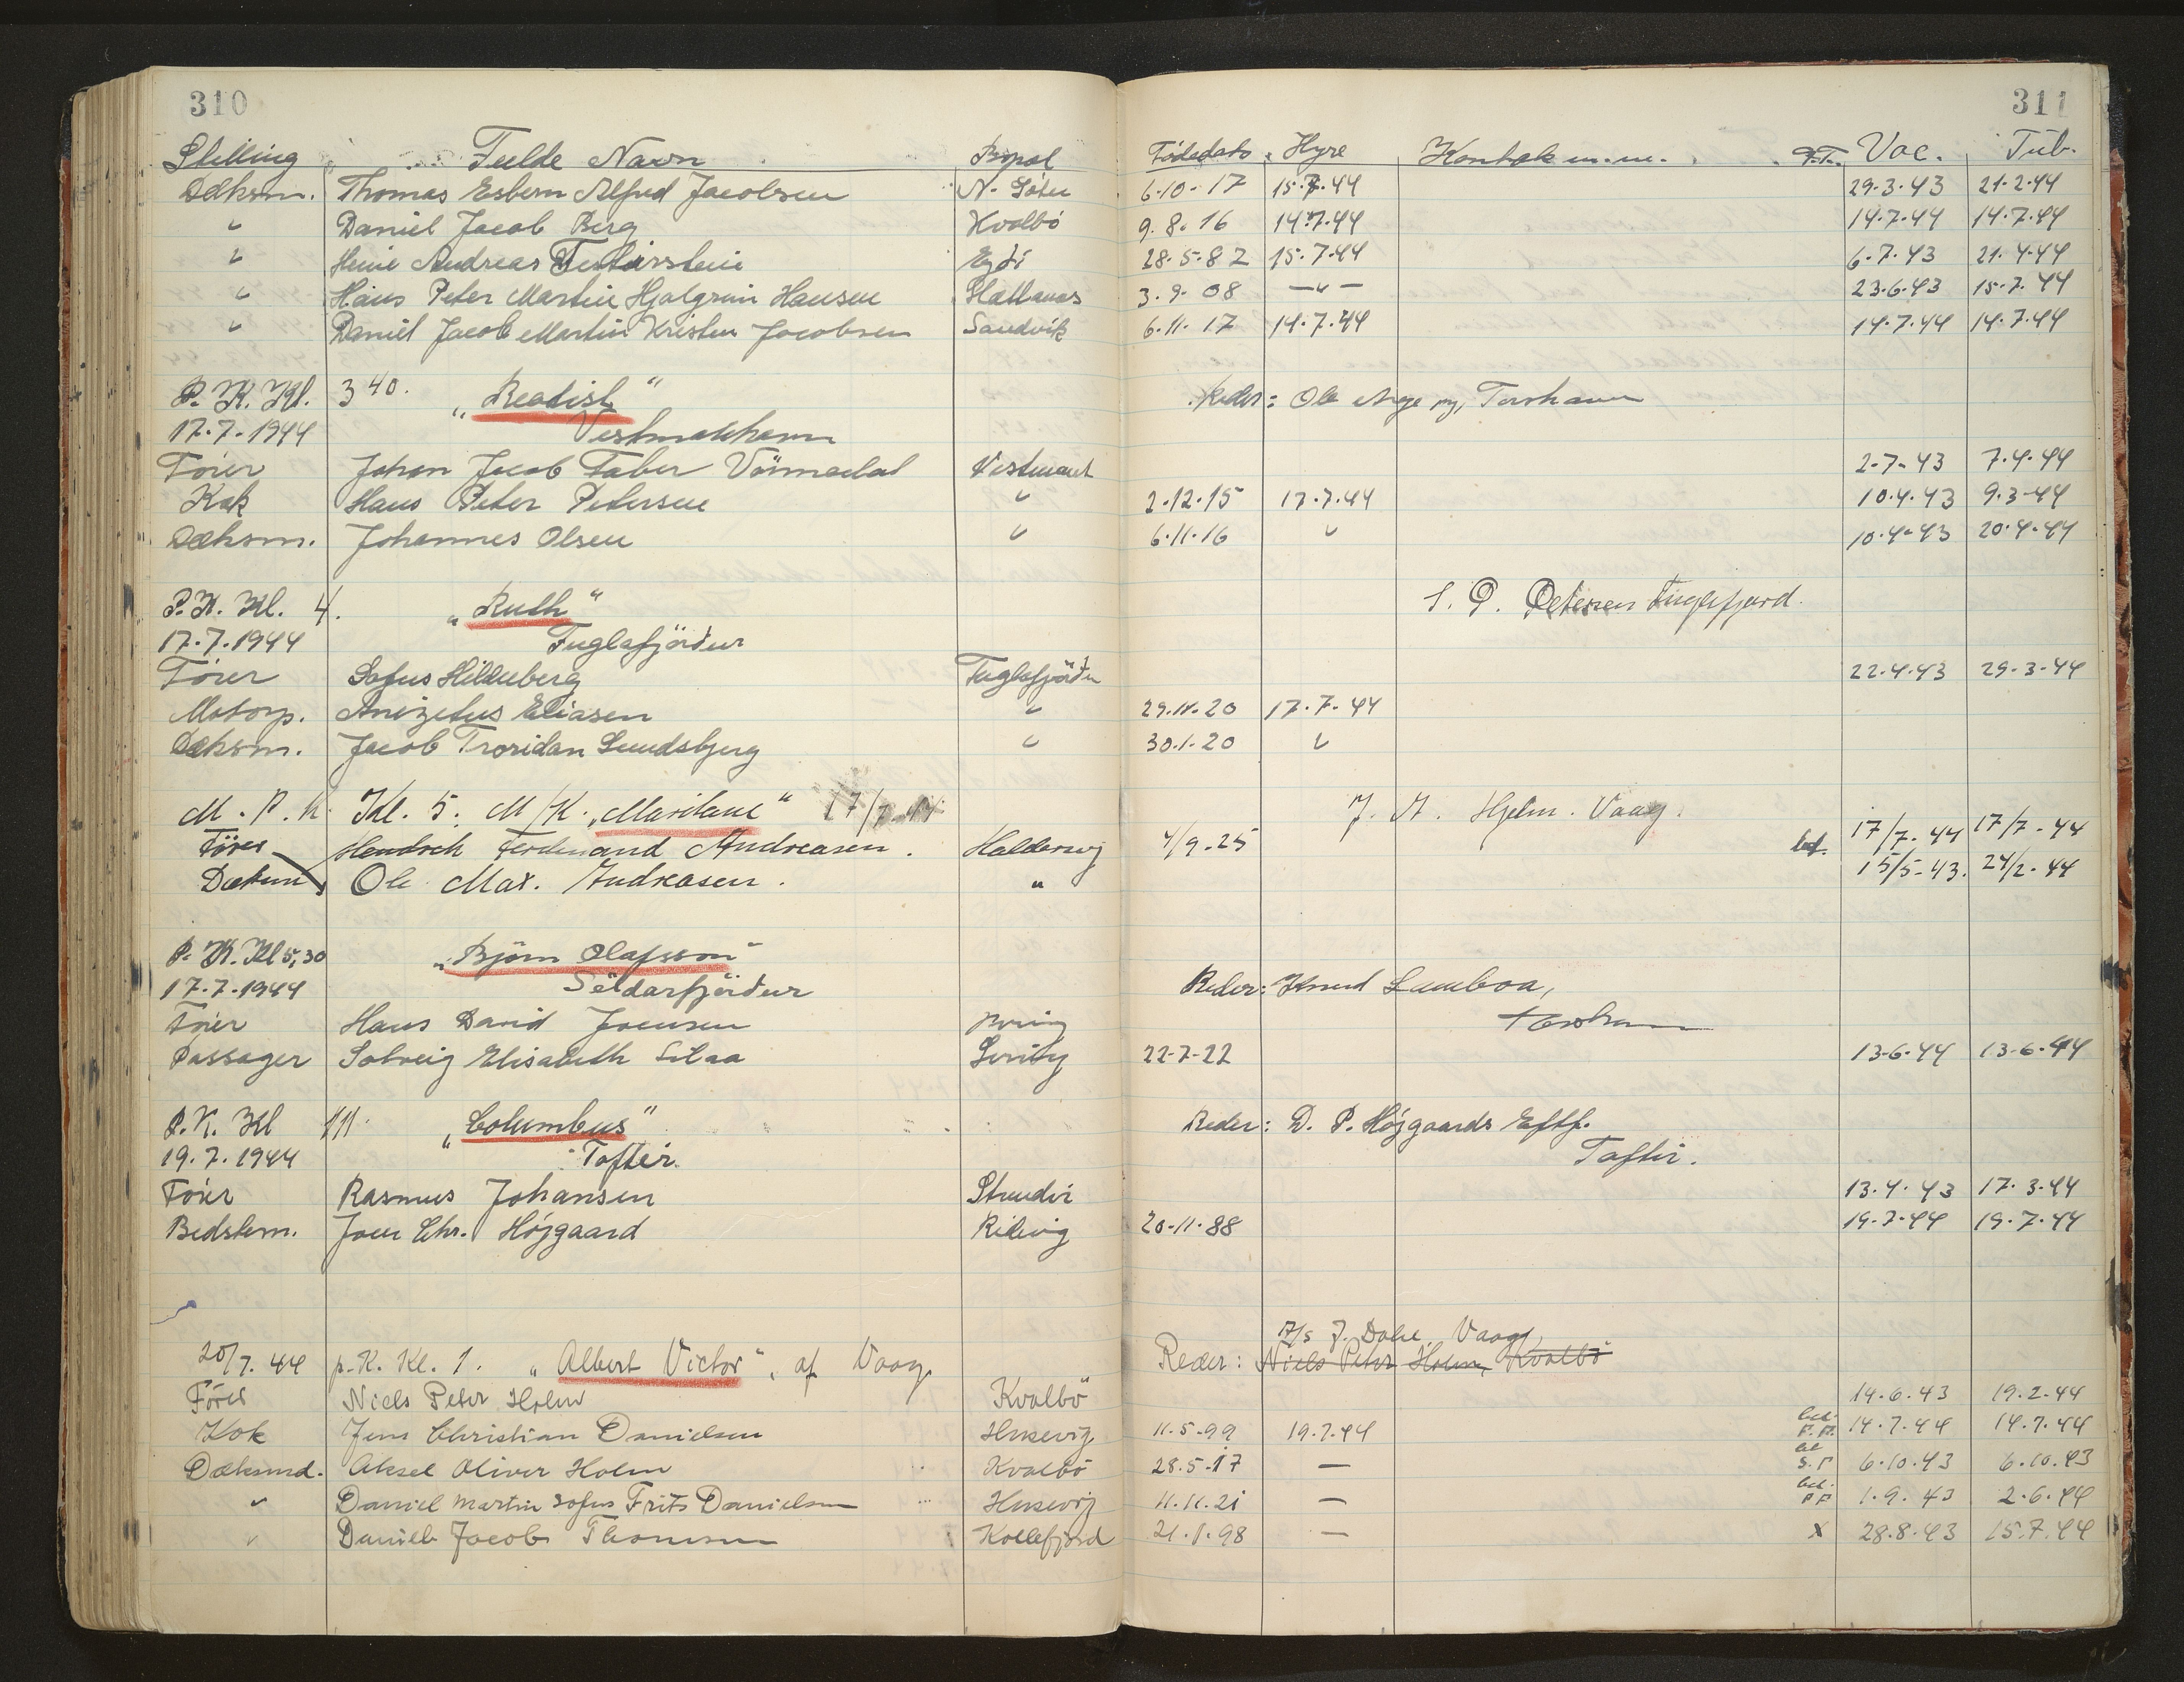 310
311
Stilling Fulde Navn Bopæl Fødedato Hyre Kontrak m.m. F.T. Vac. Tub.
Dæksm. Thomas Esbern Alfred Jacobsen N. Göta 6-10-17 15.7.44 29.3.43 21-2-44
" Daniel Jacob Berg Kvalbö 9.8.16 14.7.44 14.7.44 14.7.44
" Heine Andreas Eydi 28.5.82 15.7.44 6.7.43 21.4.44
" Hans Peter Martin Hjalgrim Hansen 3.9.08 —"— 23.6.43 15.7.44
" Daniel Jacob Martin Kristen Jacobsen Sandvík 6.11.17 14.7.44 14.7.44 14.7.44
P. K. Kl. 3 40. „Realist“ Reder: Ole Torshavn
17.7.1944 Vestmanhavn
Förer Johan Jacob Faber Vörmadal Vestmanh 2-7-43 7.4.44
Kok Hans Peter Petersen " 2.12.15 17.7.44 10.4.43 9.3-44
Dæksm. Johannes Olsen " 6.11.16 " 10.4-43 20.4.44
P. K. Kl. 4. „Ruth“ S. P. Petersen Fuglefjord.
17.7.1944 Fuglafjördur
Förer Sofus Hildenberg Fuglafjördur 22.4.43 29-3-44
Motorp. Anizetus Eliasen " 29.11.20 17.7.44
Dæksm. Jacob Troridan Lundsbjerg " 30.1.20 "
M. P. K. Kl. 5. M/K. „Maritane“ 17/7.44 J. A. Hjelm. Vaag.
Förer Hendrek Ferdenand Andreasen. Haldersvig 4/9-25 bef. 17/7-44 17/7-44
Dæksm Ole Max. Andreasen. " 15/5-43. 24/2-44
P. K. Kl 5,30 „Björn Olafsson“
17.7.1944 Söldarfjördur Reder: Knud Lamboa,
Förer Hans David Joensen Torshavn
Passager Solveig Elisabeth 22-7-22 13-6-44 13-6-44
P. K. Kl 11. „Columbus“ Reder: D. P. Højgaards Eftf.
19.7.1944 Tofter. Toftir.
Förer Rasmus Johansen Strendir 13.4.43 17.3-44
Bedstem. Joen Chr. Højgaard Ridevig 20-11-88 19-7-44 19.7.44
A/S J. Dahl, Vaag,
20/7.44 p.K. Kl. 1. „Albert Victor“, af Vaag. Reder: Niels Peter Holm, Kvalbö
Förer Niels Peter Holm Kvalbö 14.6.43 19.2.44
Kok Jens Christian Danielsen Husevig 11.5.99 19.7.44 bef. P.P. 14.7.44 14.7.44
Dæksmd. Aksel Oliver Holm Kvalbö 28.5.17 — bef S.P 6.10.43 6.10.43
" Daniel Martin Sofus Frits Danielsen Husevig 11.11.21 — bef. PP 1.9.43 2.6.44
" Daniel Jacob Thomsen Kollefjord 21.1.98 — X 28.8.43 15.7.44